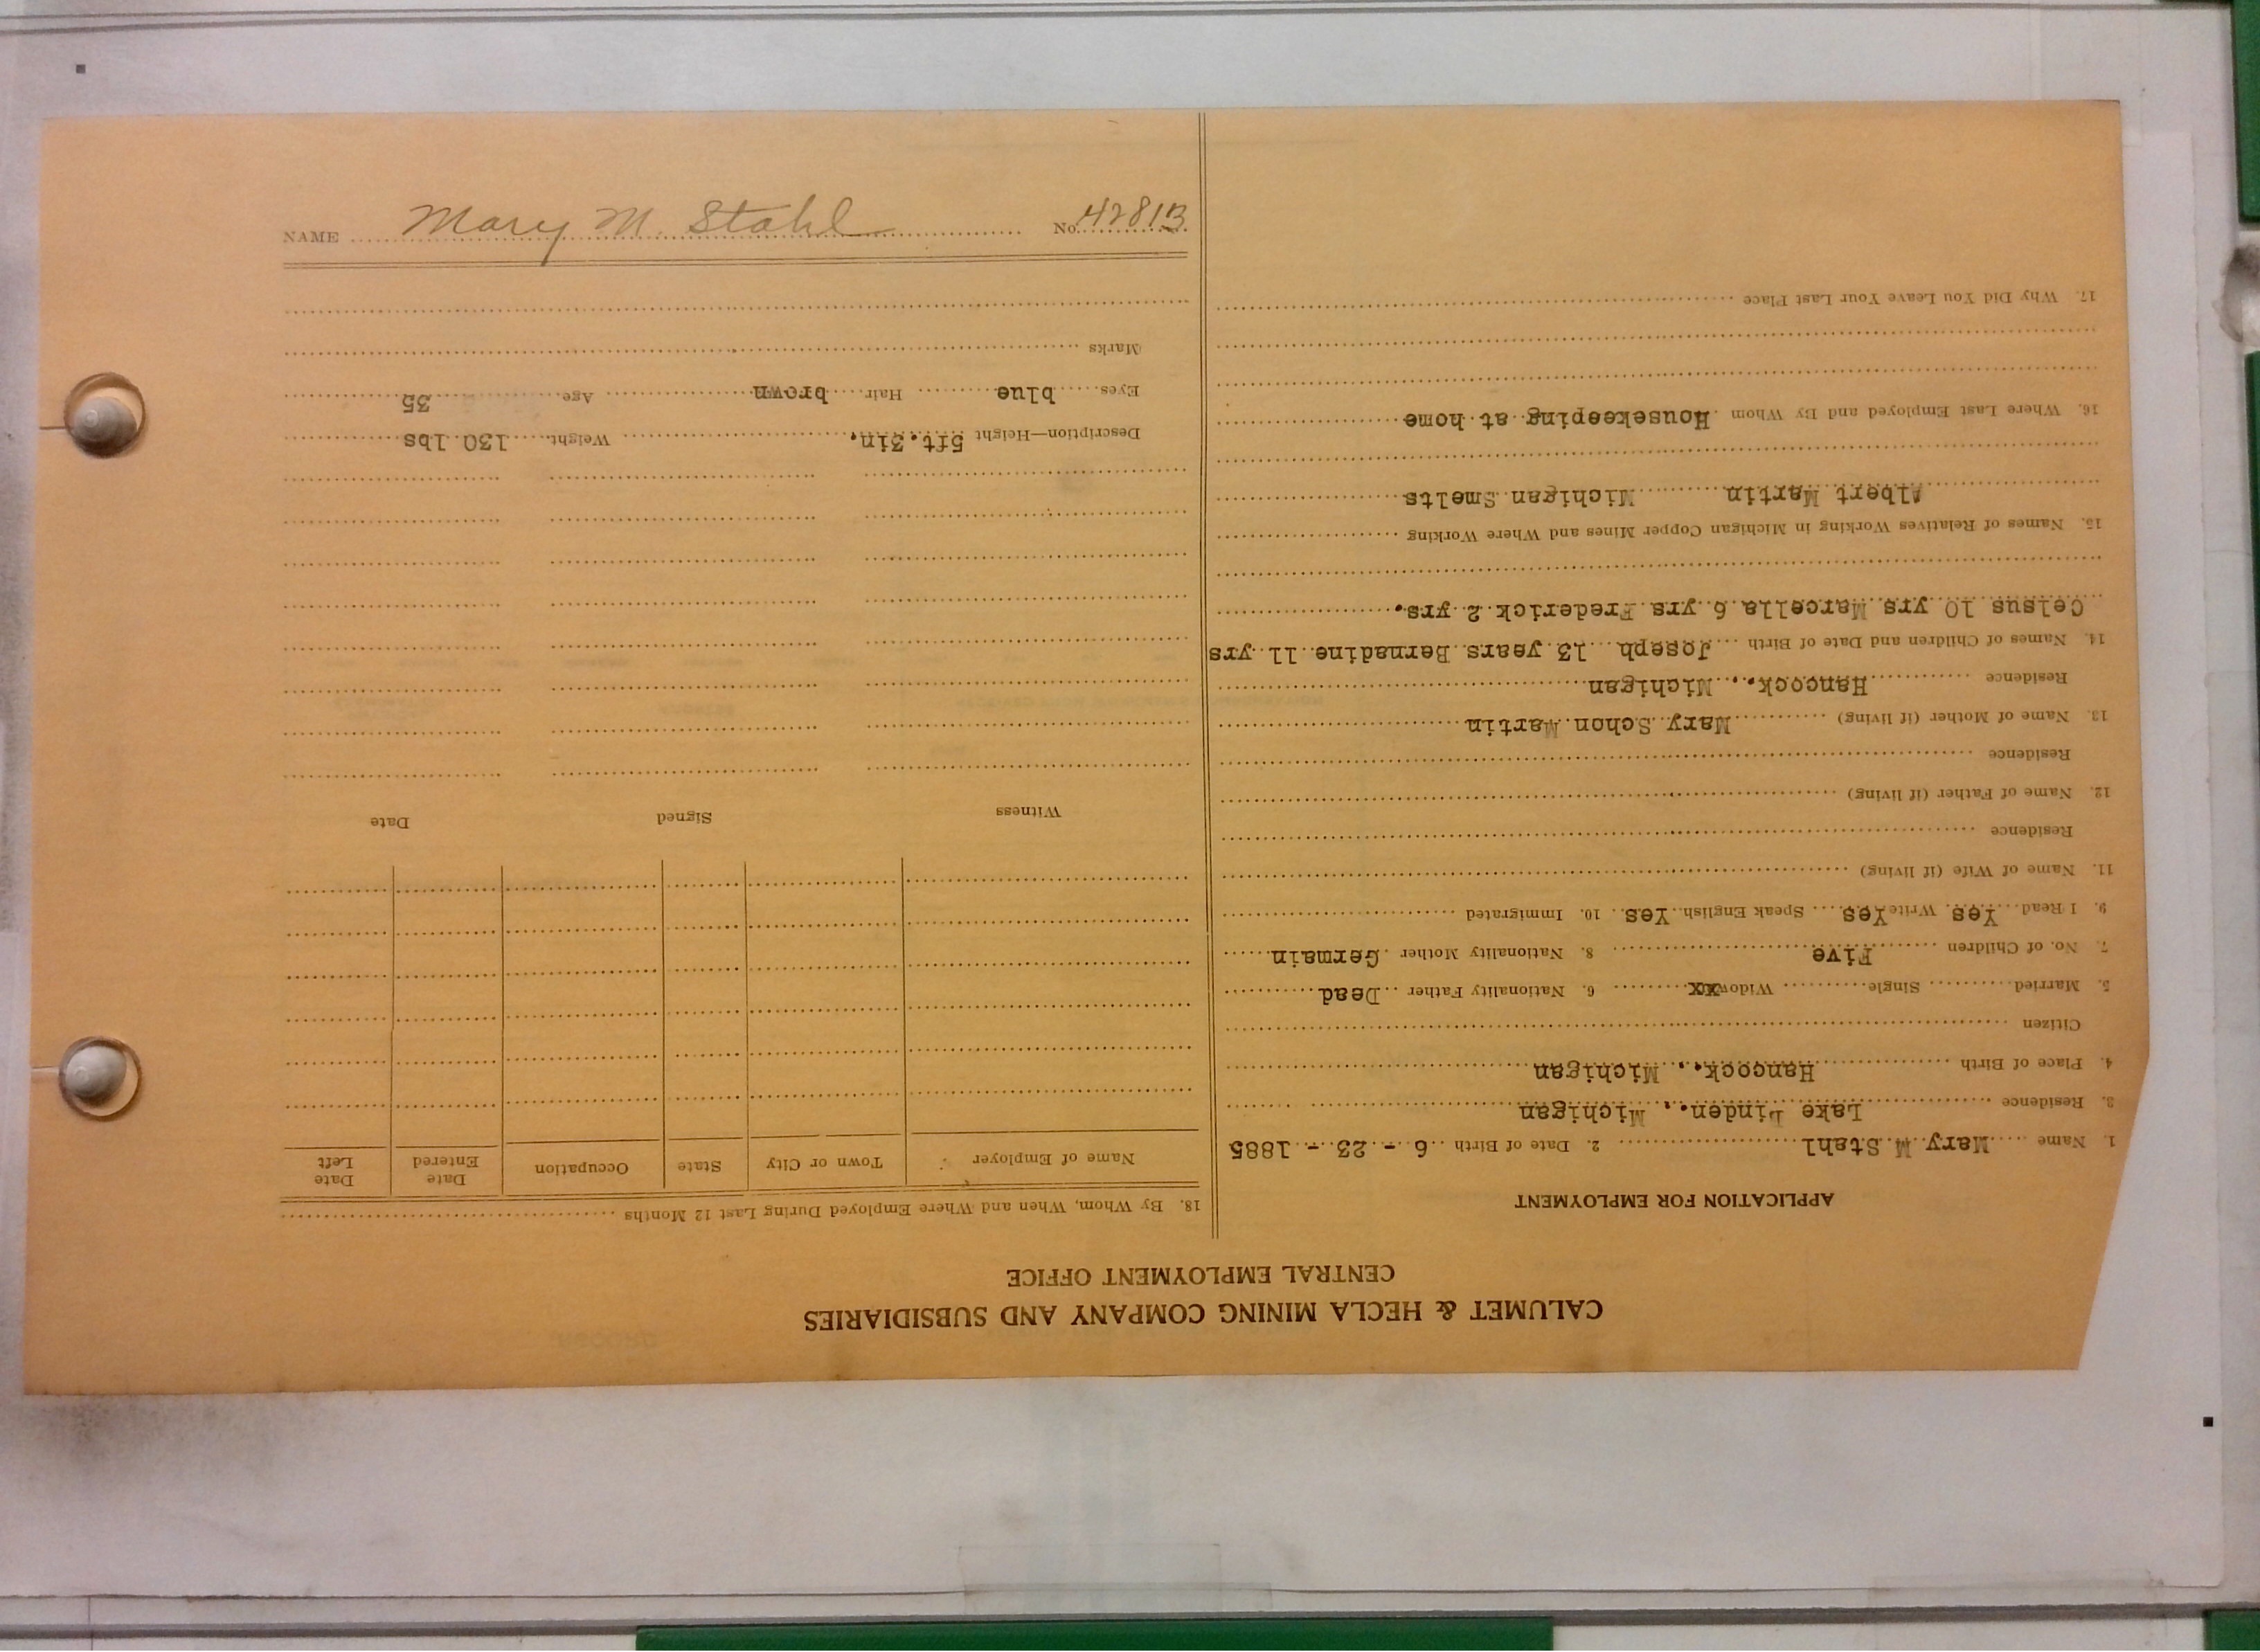 CALUMET & HECLA MINING COMPANY AND SUBSIDIARIES
CENTRAL EMPLOYMENT OFFICE
APPLICATION FOR EMPLOYMENT
1. Name Mary M Stahl 2. Date of Birth 6 - 23 - 1885
3. Residence Lake Linden., Michigan
4. Place of Birth Hancock., Michigan
Citizen
5. Married Single Widow xx 6. Nationality Father Dead
7. No. of Children Five 8. Nationality Mother Germain
9. I Read Yes Write Yes Speak English Yes 10. Immigrated
11. Name of Wife (if living)
Residence
12. Name of Father (if living)
Residence
13. Name of Mother (if living) Mary Schon Martin
Residence Hancock., Michigan
14. Names of Children and Date of Birth Joseph 13 years Bernadine 11 yrs
Celsus 10 yrs Marcella 6 yrs Frederick 2 yrs.
15. Names of Relatives Working in Michigan Copper Mines and Where Working
Albert Martin Michigan Smelts
16. Where Last Employed and By Whom Housekeeping at home
17. Why Did You Leave Your Last Place
18. By Whom, When and Where Employed During Last 12 Months
Name of Employer Town or City State Occupation Date Entered Date Left
Witness Signed Date
Description—Height 5ft. 3in. Weight 130 lbs
Eyes blue Hair brown Age 35
Marks
NAME Mary M. Stahl No. 42813